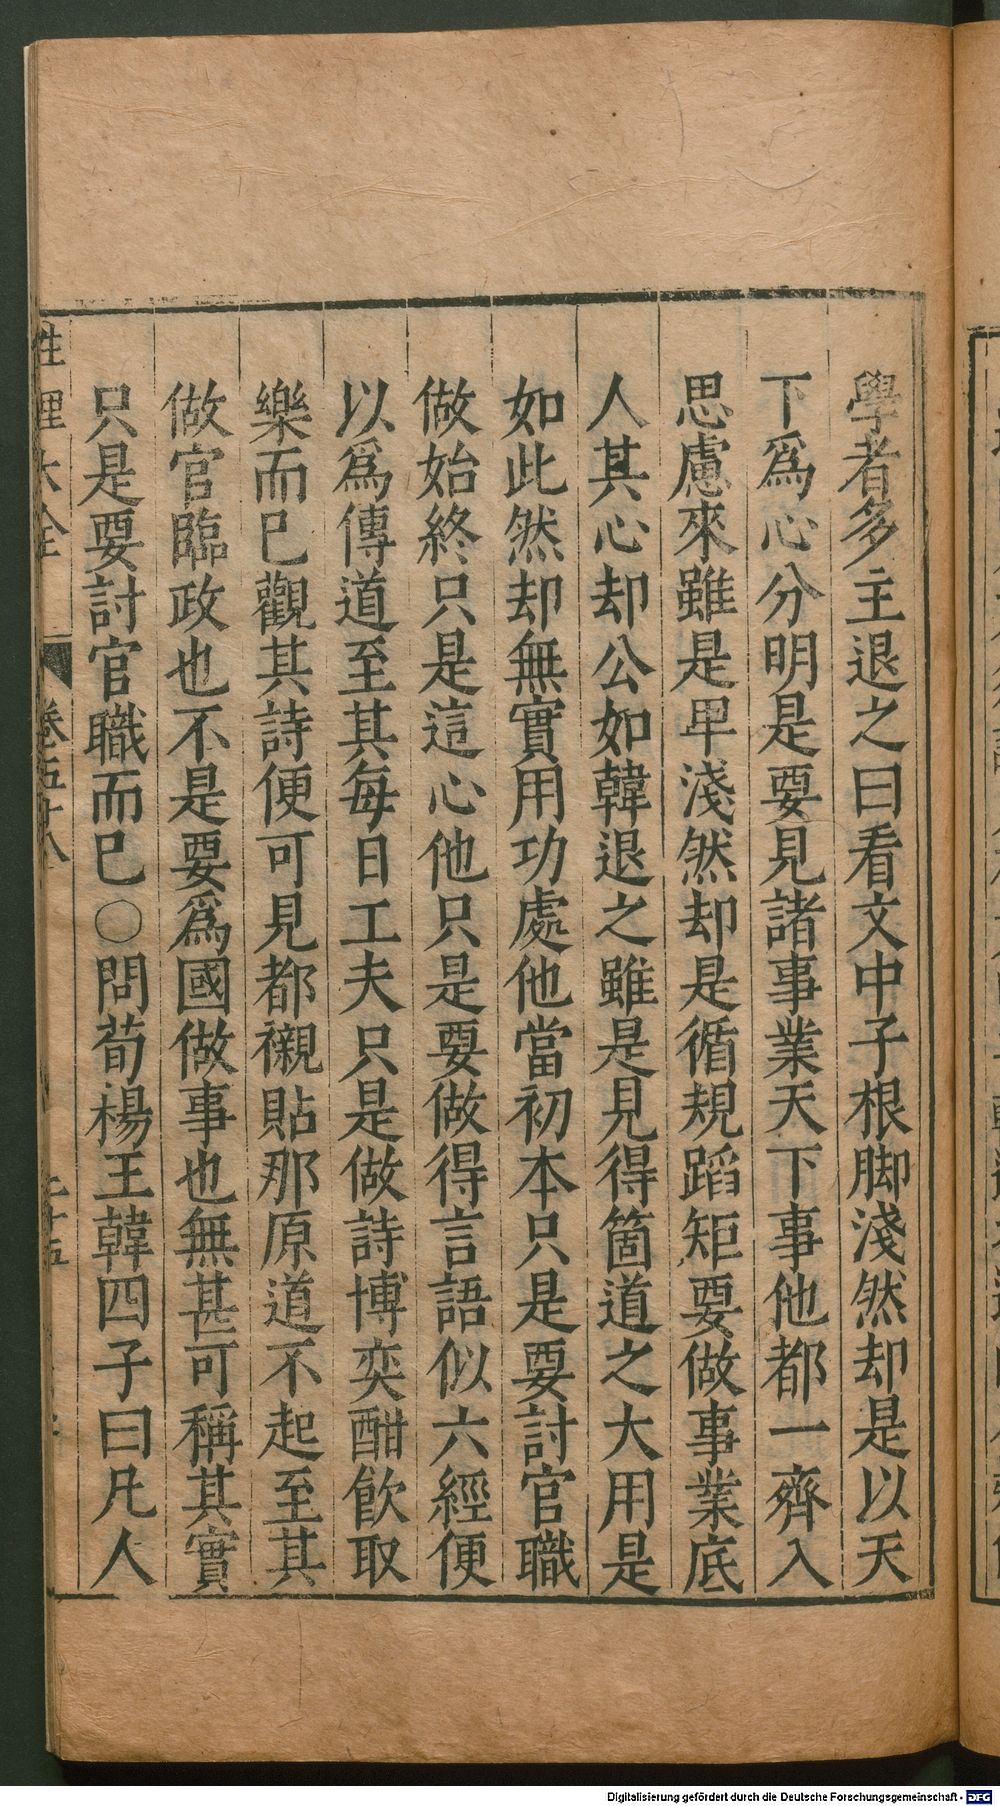 學者多主退之曰看文中子根脚淺然却是以天
下爲心分明是要見諸事業天下事他都一齊入
思慮來雖是卑淺然却是循規蹈矩要做事業底
人其心却公如韓退之雖是見得箇道之大用是
如此然却無實用功處他當初本只是要討官職
做始終只是這心他只是要做得言語似六經便
以爲傳道至其每日工夫只是做詩博奕酣飲取
樂而已觀其詩便可見都襯貼那原道不起至其
做官臨政也不是要爲國做事也無甚可稱其實
只是要討官職而已○問荀楊王韓四子曰凡人
性理大全 卷五十八
Digitalisierung gefördert durch die Deutsche Forschungsgemeinschaft - DFG